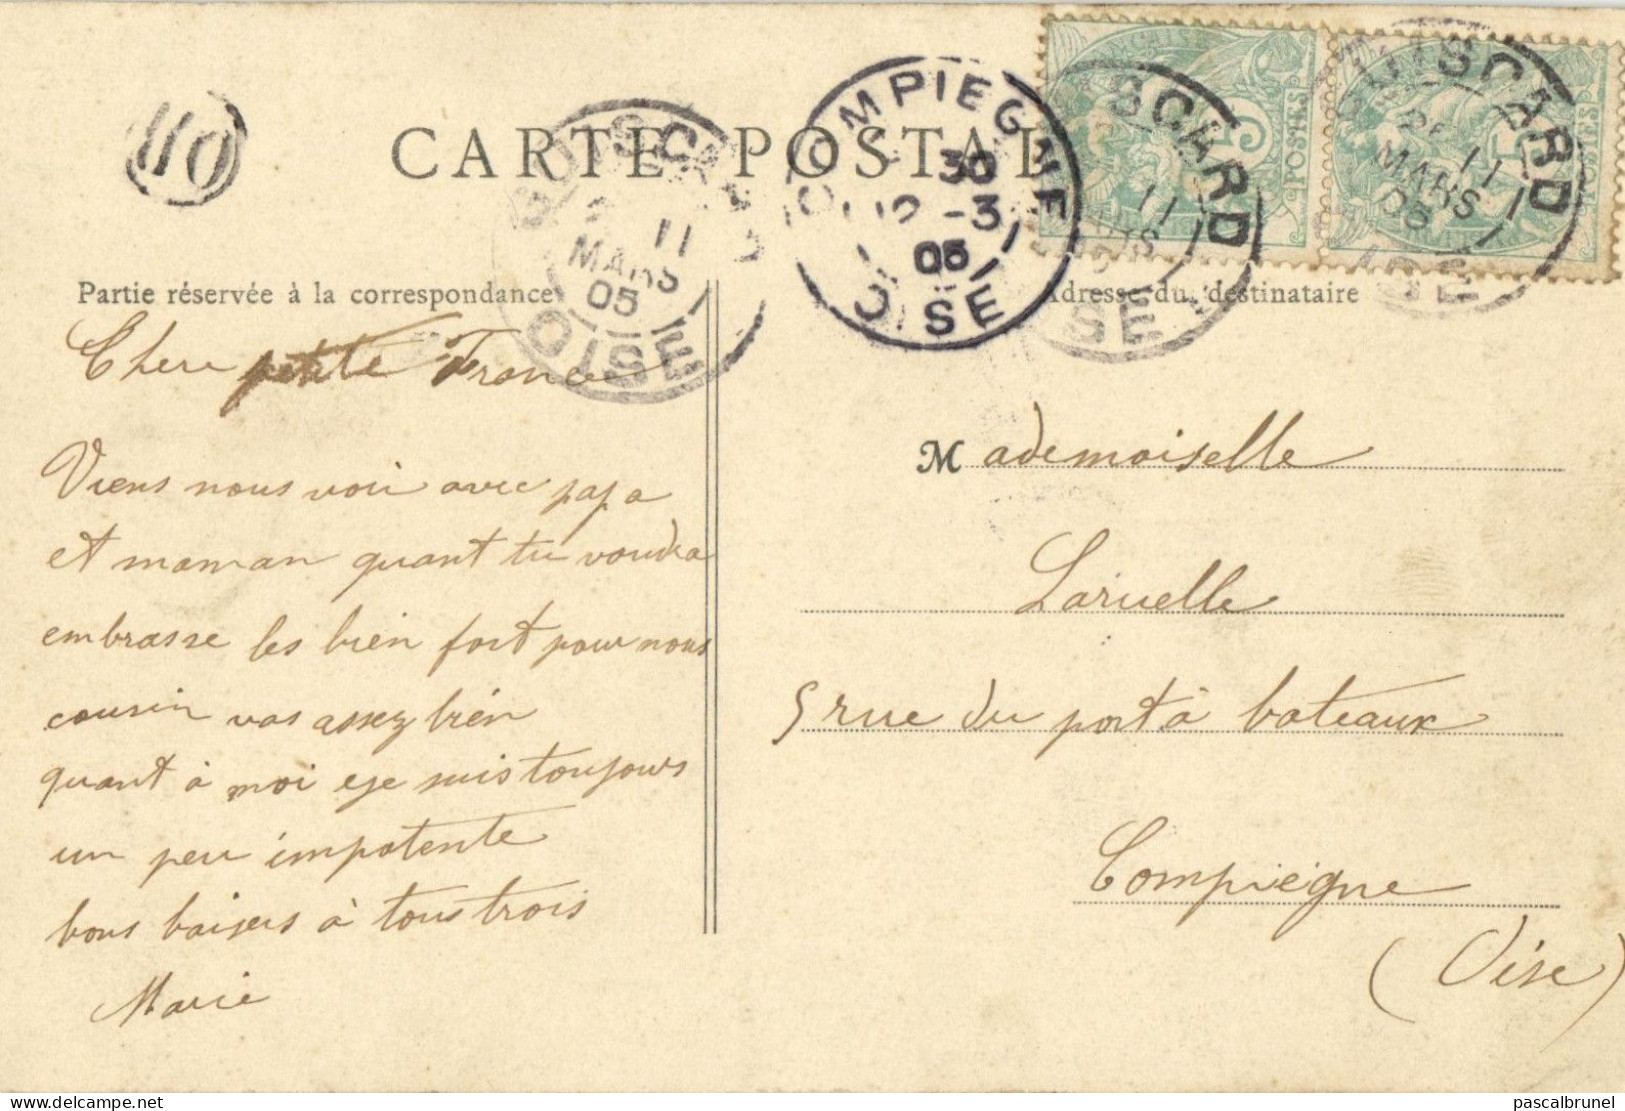 CARTE POSTALE
Partie réservée à la correspondance
Adresse du destinataire
110
GUISCARD
11
MARS
05
OISE
COMPIEGNE
30 -3
05
OISE
GUISCARD
11
MARS
05
OISE
POSTES
5
POSTES
Chere petite France
Viens nous voir avec papa
et maman quant tu voudra
embrasse les bien fort pour nous
cousin vas assez bien
quant à moi eje suis toujours
un peu impotente
bons baisers à tous trois
Marie
Mademoiselle
Laruelle
5 rue du port à bateaux
Compiègne
(Oise)
pascalbrunel
www.delcampe.net